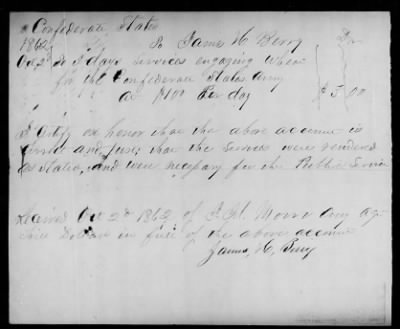 Confederate States
1862 To James H. Berry Dr
Oct 2d To 3 days services engaging Wheat
for the Confederate States Army
at $1.00 Per day $3.00
I Certify on honor that the above account is
correct and just; that the services were rendered
as stated, and were necessary for the Public Service
Received Oct 2d 1862 of Moore Army Agt
Dollars in full of the above account
James H, Berry